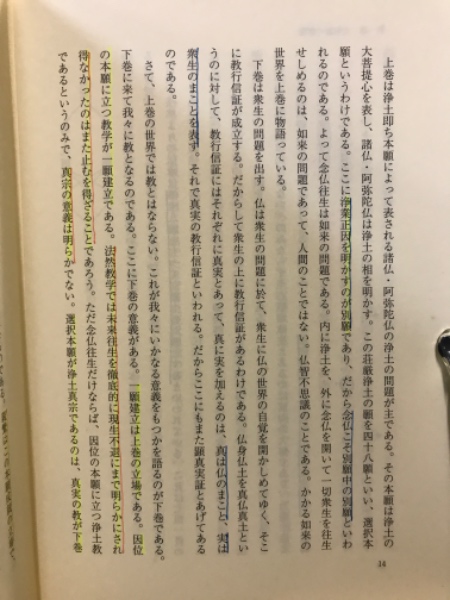 上巻は浄土即ち本願によって表される諸仏・阿弥陀仏の浄土の問題が主である。その本願は浄土の
大菩提心を表し、諸仏・阿弥陀仏は浄土の相を明かす。この荘厳浄土の願を四十八願といい、選択本
願というわけである。ここに浄業正因を明かすのが別願であり、だから念仏こそ別願中の別願といわ
れるのである。よって念仏往生は如来の問題である。内に浄土を、外に念仏を開いて一切衆生を往生
せしめるのは、如来の問題であって、人間のことではない。仏智不思議のことである。かかる如来の
世界を上巻に物語っている。
下巻は衆生の問題を出す。仏は衆生の問題に於て、衆生に仏の世界の自覚を開かしめてゆく、そこ
に教行信証が成立する。だからして衆生の上に教行信証があるわけである。仏身仏土を真仏真土とい
うのに対して、教行信証にはそれぞれに真実とあって、真に実を加えるのは、真は仏のまこと、実は
衆生のまことを表す。それで真実の教行信証といわれる。だからここにもまた顕真実証とあげてある
のである。
さて、上巻の世界では教とはならない。これが我々にいかなる意義をもつかを語るのが下巻である。
下巻に来て我々に教となるのである。ここに下巻の意義がある。一願建立は上巻の立場である。因位
の本願に立つ教学が一願建立である。法然教学では未来往生を徹底的に現生不退にまで明らかにされ
得なかったのはまた止むを得ざることであろう。ただ念仏往生だけならば、因位の本願に立つ浄土教
であるというのみで、真宗の意義は明らかでない。選択本願が浄土真宗であるのは、真実の教が下巻
14